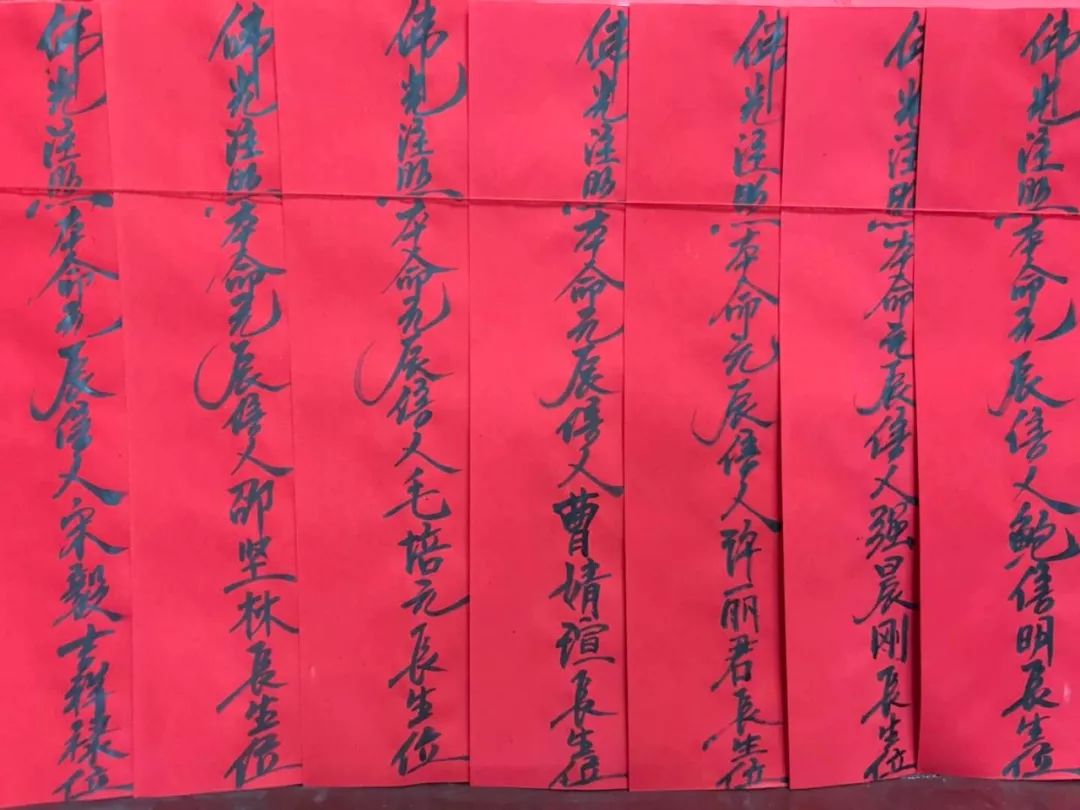 佛光注照本命元辰信人鲍明長生位
佛光注照本命元辰信人强晨刚長生位
佛光注照本命元辰信人许丽君長生位
佛光注照本命元辰信人曹婧瑄長生位
佛光注照本命元辰信人毛培元長生位
佛光注照本命元辰信人邵坚林長生位
佛光注照本命元辰信人宋毅吉祥禄位